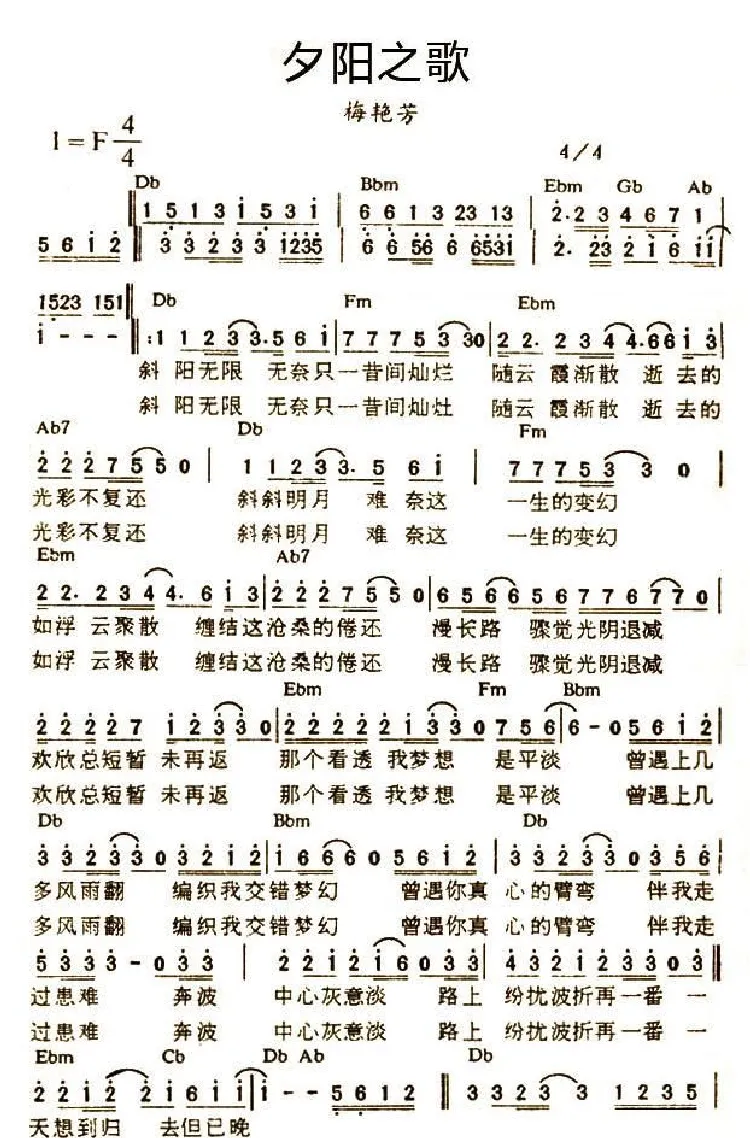 夕阳之歌
梅艳芳
1=F 4/4 4/4
Db Bbm Ebm Gb Ab
1 5 1 3 1 5 3 1 | 6 6 1 3 23 13 | 2. 2 3 4 6 7 1
5 6 1 2 ‖ 3 3 2 3 3 1235 | 6 6 56 6 6531 | 2. 23 2 1 6 11
1523 151 Db Fm Ebm
1 - - - ‖: 1 1 2 3 3. 5 6 1 | 7 7 7 5 3 30 | 2 2. 2 3 4 4. 6 6 1 3
斜 阳无限 无奈只一昔间灿烂 随云 霞渐散 逝去的
斜 阳无限 无奈只一昔间灿灶 随云 霞渐散 逝去的
Ab7 Db Fm
2 2 2 7 5 5 0 | 1 1 2 3 3. 5 6 1 | 7 7 7 5 3 3 0 |
光彩不复还 斜斜明月 难 奈这 一生的变幻
光彩不复还 斜斜明月 难 奈这 一生的变幻
Ebm Ab7
2 2. 2 3 4 4. 6 1 3 | 2 2 2 7 5 5 0 | 6 5 6 6 5 6 7 7 6 7 7 0
如浮 云聚散 缠结这沧桑的倦还 漫长路 骤觉光阴退减
如浮 云聚散 缠结这沧桑的倦还 漫长路 骤觉光阴退减
Ebm Fm Bbm
2 2 2 2 7 1 2 3 3 0 | 2 2 2 2 2 1 3 3 0 7 5 6 | 6 - 0 5 6 1 2
欢欣总短暂 未再返 那个看透 我梦想 是平淡 曾遇上几
欢欣总短暂 未再返 那个看透 我梦想 是平淡 曾遇上几
Db Bbm Db
3 3 2 3 3 0 3 2 1 2 | 1 6 6 6 0 5 6 1 2 | 3 3 3 3 3 0 3 5 6
多风雨翻 编织我交错梦幻 曾遇你真 心的臂弯 伴我走
多风雨翻 编织我交错梦幻 曾遇你真 心的臂弯 伴我走
5 3 3 3 - 0 3 3 | 2 2 1 2 1 6 0 3 3 | 4 3 2 1 2 3 3 0 3 ‖
过患难 奔波 中心灰意淡 路上 纷扰波折再一番 一
过患难 奔波 中心灰意淡 路上 纷扰波折再一番 一
Ebm Cb Db Ab Db
2 2 1 2 2 1 6 1 1 | 1 - - 5 6 1 2 ‖ 3 3 2 3 3 1 2 3 5
天想到归 去但已晚